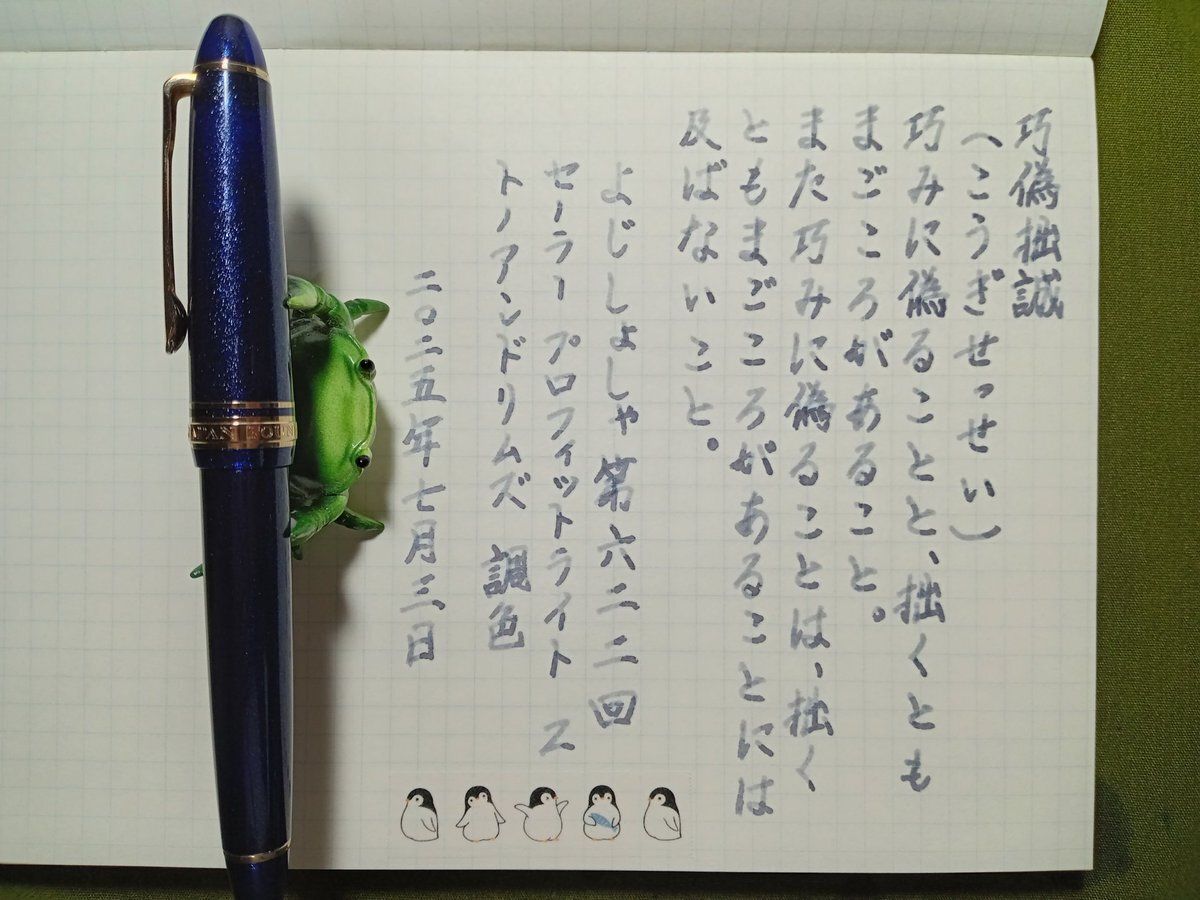 巧偽拙誠
（こうぎせっせい）
巧みに偽ることと、拙くとも
まごころがあること。
また巧みに偽ることは、拙く
ともまごころがあることには
及ばないこと。
よじしょしゃ第六二二回
セーラー プロフィットライト ス
トノアンドリムズ 調色
二〇二五年七月三日